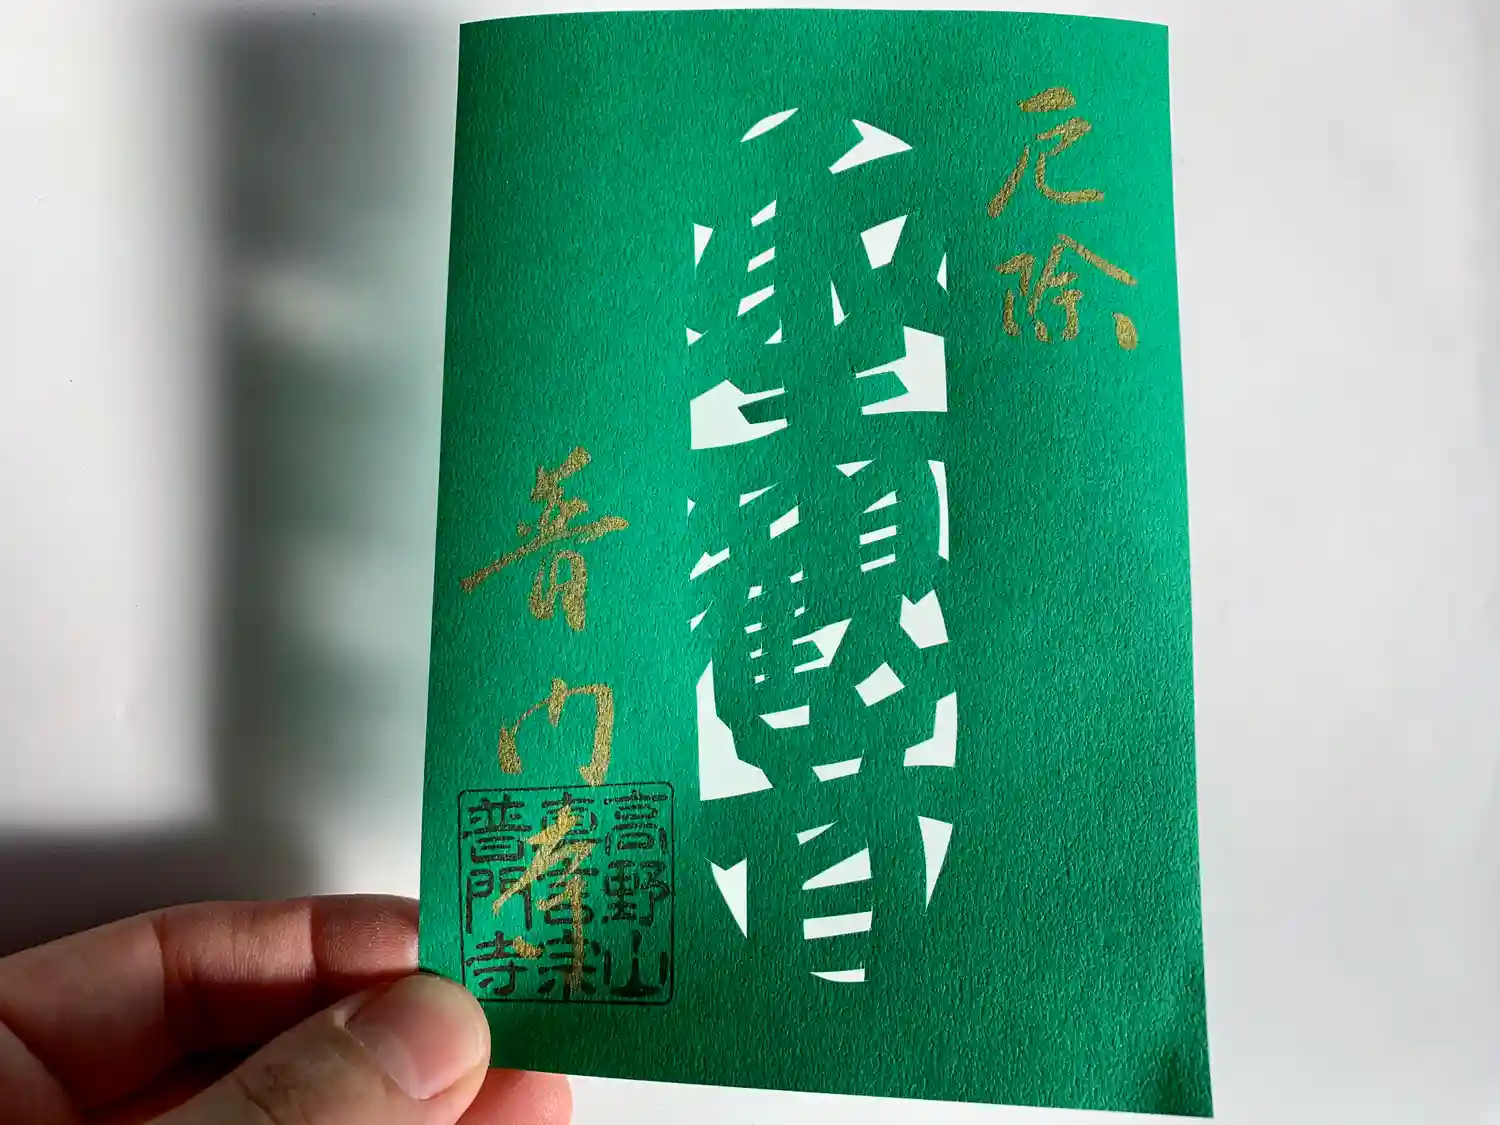 厄除
普門寺
高野山
真言宗
普門寺